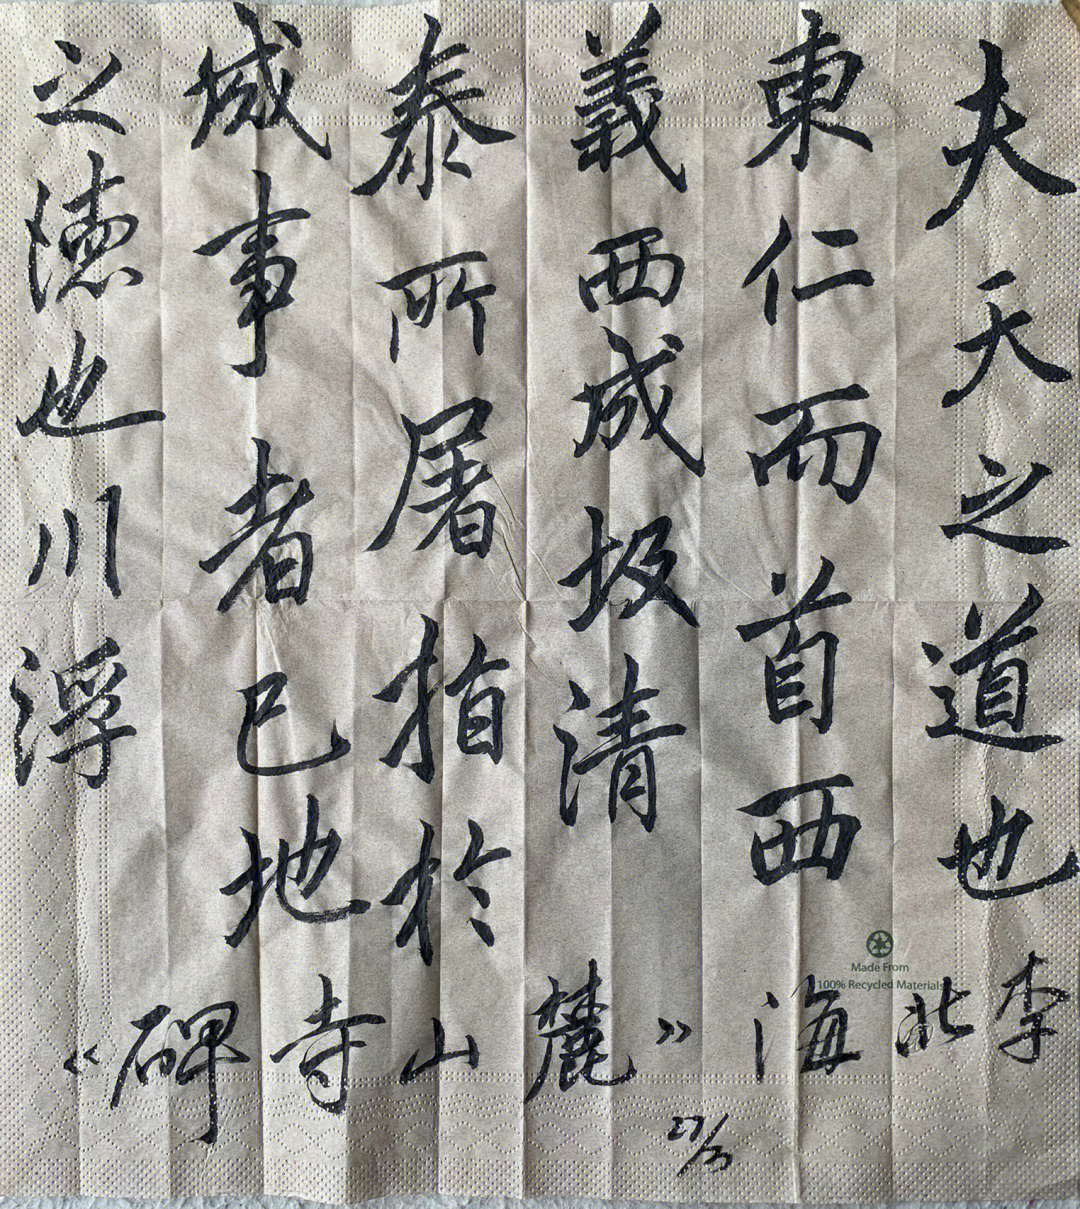 夫天之道也
東仁而首西
義西成圾清
泰所屠指於
成事者已地
之德也川浮
李北海《麓山寺碑》
27/3
Made From
100% Recycled Materials